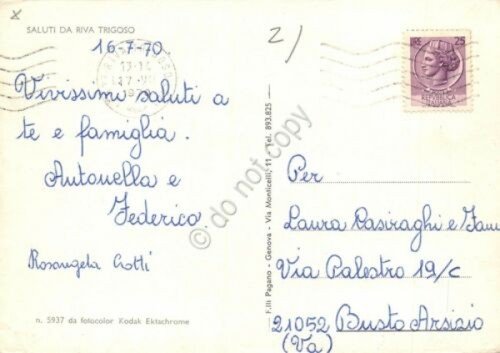 SALUTI DA RIVA TRIGOSO
16-7-70.
13-14
17·V
2)
LIRE 25
REPUBBLICA
ITALIANA
Vivissimi saluti a
te e famiglia.
Antonella e
Federico
Rosangela Crotti
n. 5937 da fotocolor Kodak Ektachrome
F.lli Pagano - Genova - Via Monticelli, 11 - Tel. 893.825
Per
Laura Casiraghi e Fam
Via Palestro 19/c
21052 Busto Arsizio
(Va)
© do not copy